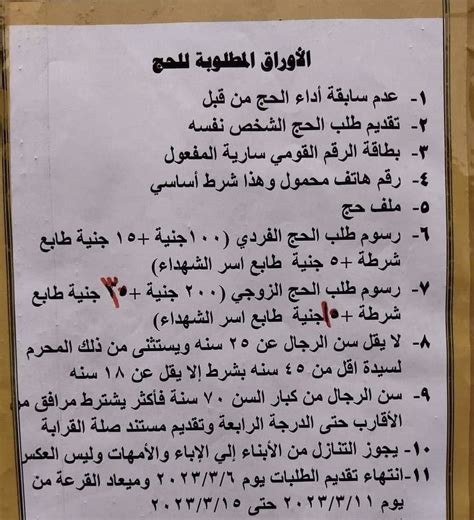 الأوراق المطلوبة للحج
١- عدم سابقة أداء الحج من قبل
٢- تقديم طلب الحج الشخص نفسه
٣- بطاقة الرقم القومي سارية المفعول
٤- رقم هاتف محمول وهذا شرط أساسي
٥- ملف حج
٦- رسوم طلب الحج الفردي (١٠٠جنية +١٥ جنية طابع
شرطة +٥ جنية طابع اسر الشهداء)
٧- رسوم طلب الحج الزوجي (٢٠٠ جنية +٣٠ جنية طابع
شرطة +١٠جنية طابع اسر الشهداء)
٨- لا يقل سن الرجال عن ٢٥ سنه ويستثنى من ذلك المحرم
لسيدة اقل من ٤٥ سنه بشرط إلا يقل عن ١٨ سنه
٩- سن الرجال من كبار السن ٧٠ سنة فأكثر يشترط مرافق من
الأقارب حتى الدرجة الرابعة وتقديم مستند صلة القرابة
١٠- يجوز التنازل من الأبناء إلي الإباء والأمهات وليس العكس
١١-انتهاء تقديم الطلبات يوم ٢٠٢٣/٣/٦ وميعاد القرعة من
يوم ٢٠٢٣/٣/١١ حتى ٢٠٢٣/٣/١٥